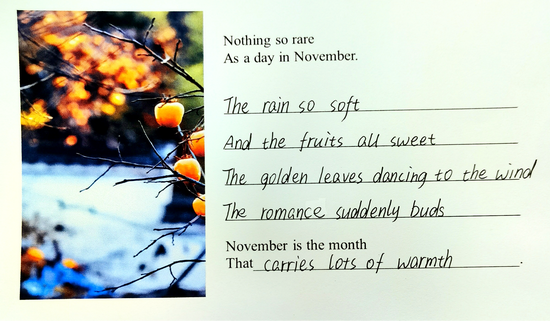 Nothing so rare
As a day in November.
The rain so soft
And the fruits all sweet
The golden leaves dancing to the wind
The romance suddenly buds
November is the month
That carries lots of warmth.